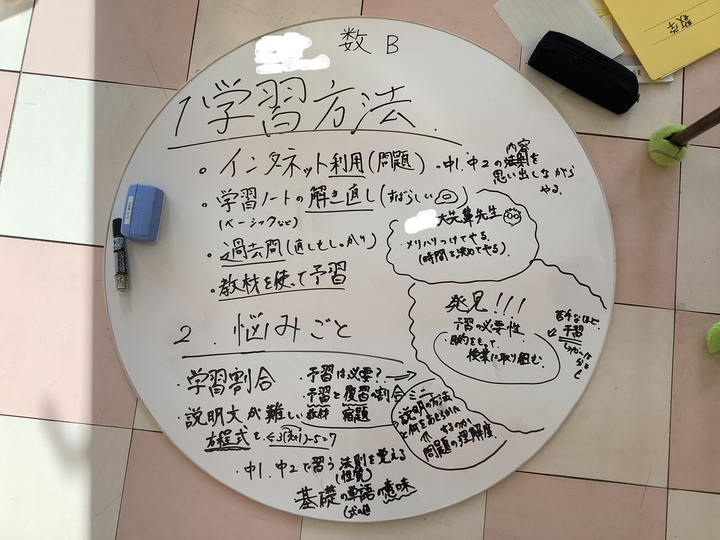 数B
1 学習方法.
・インタネット利用(問題)
・中1.中2の法則を
内容
思い出しながら
やる.
・学習ノートの解き直し(すばらしい)
(ベーシックなど)
・過去問(直しもしっかり)
・教材を使って予習
大先輩先生
・メリハリつけてやる.
(時間を決めてやる)
発見!!!
予習の必要性
・目的をもって.
授業に取り組む.
苦手なほど.
予習
2.悩みごと
・学習割合
・予習は必要?
・予習と復習の割合
教材 宿題
・説明文が難しい
方程式を.
3(x+1)-5=7
・中1.中2で習う法則を覚える
(性質)
基礎の単語の意味
説明の方法
何をあきらかに
するのか
問題の理解度.